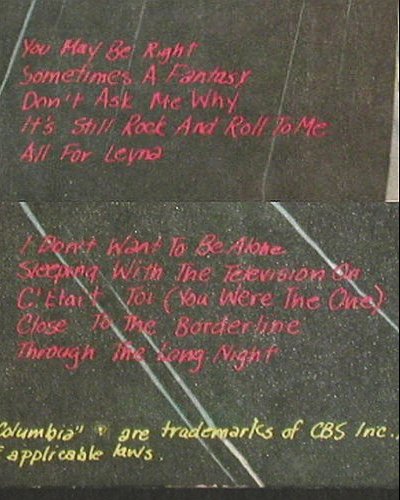 You May Be Right
Sometimes A Fantasy
Don't Ask Me Why
It's Still Rock And Roll To Me
All For Leyna
I Don't Want To Be Alone
Sleeping With The Television On
C'Etait Toi (You Were The One)
Close To The Borderline
Through The Long Night
Columbia" ® are trademarks of CBS Inc.,
applicable laws.